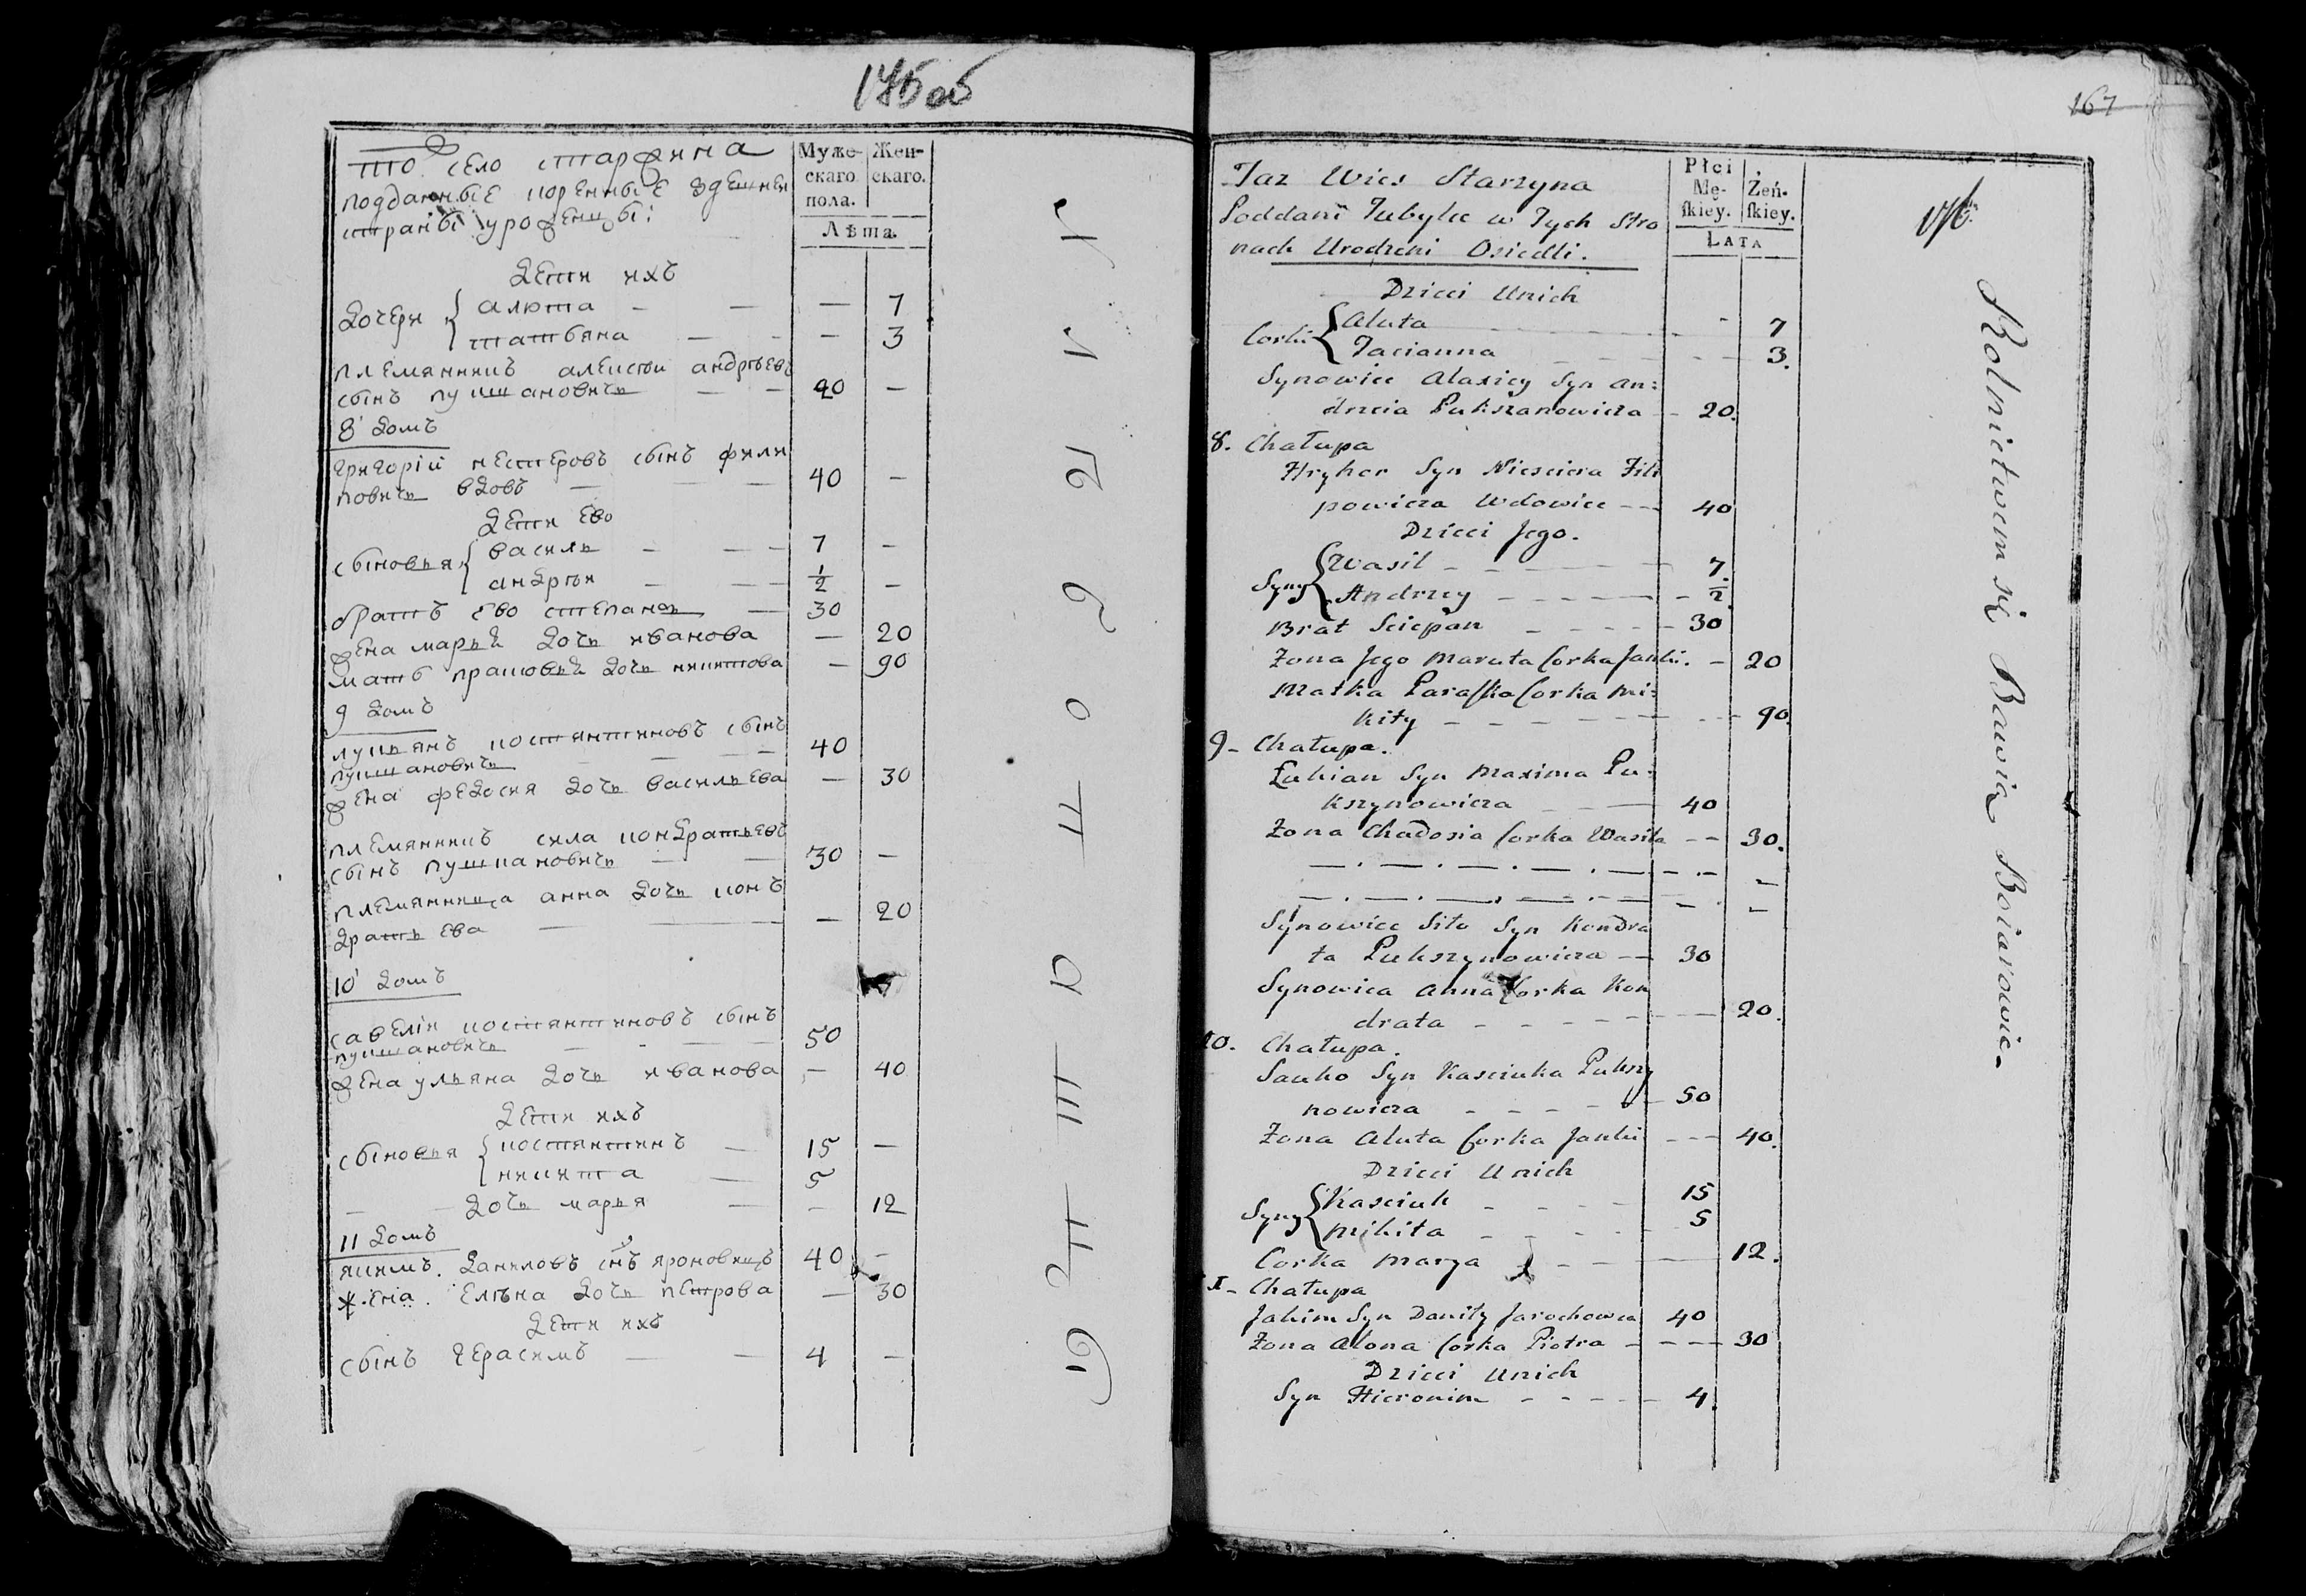 175 об
то село старжина
подданные коренные здешнеи
страны уроженцы:
Муже-
скаго
пола.
Жен-
скаго.
Лѣта.
дети ихъ
дочери { алюта — — — 7
татьяна — — — 3
племянникъ алексѣи андрѣевъ
сынъ пукшановичь — — 20 —
8 домъ
григорій нестеровъ сынъ фили
повичь вдовъ — — — 40 —
дети ево
сыновья { василь — — — 7 —
андрѣи — — — 1/2 —
братъ ево степанъ — 30
жена марья дочь иванова — 20
мать прасковья дочь никитова — 90
9 домъ
лукьянъ костянтиновъ сынъ
пукшановичь — — — 40
жена федосия дочь васильева — 30
племянникъ сила кондратьевъ
сынъ пушкановичь — — 30 —
племянница анна дочь конъ
дратьева — — — 20
10 домъ
савелiи костянтиновъ сынъ
пукшановичь — - — 50
жена ульяна дочь иванова — 40
дети ихъ
сыновья { костянтинъ — 15 —
никита — 5
— — дочь марья — — 12
11 домъ
якимъ. даниловъ снъ яроновицъ 40 —
жена. елѣна дочь петрова — 30
дети ихъ
сынъ герасимъ — — 4 —
167
176
Taz Wies Starzyna
Poddani Tubylce w Tych Stro
nach Urodzeni Osiedli.
Płci
Mę-
skiey.
Żeń-
skiey.
Lata
Dzieci Unich
Corki { Aluta - 7
Tacianna - - - 3.
Synowiec Alaxiey Syn An:
drzeia Pukszanowicza - 20.
8. Chałupa
Hryhor Syn Niesciera Fili
powicza Wdowiec - - 40
Dzieci Jego.
Syny { Wasil - - - 7.
Andrzey - - - 1/2.
Brat Sciepan - - - 30
Zona Jego Maruta Corka Janki. - 20
Matka Paraska Corka Mi:
kity - - - 90.
9- Chałupa.
Łukian Syn Maxima Pu:
kszynowicza - - 40
Zona Chadosia Corka Wasila - - 30.
— . — . — . — . — - . -
— . — . — . — . — - . -
Synowiec Siło Syn Kondra
ta Pukszynowicza - - 30
Synowica Anna Corka Kon
drata - - - 20.
10. Chałupa.
Sauko Syn Kasciuka Pukszy
nowicza - - - 50
Zona Aluta Corka Janki - - - 40.
Dzieci Unich
Syny { Kasciuk - - - 15
Mikita - - - 5
Corka Marya - - - 12.
I- Chałupa
Jakim Syn Daniły Jarochowca 40
Zona Alona Corka Piotra - - - 30
Dzieci Unich
Syn Hieronim - - - 4.
Rolnictwem się Bawią Boiarowie.